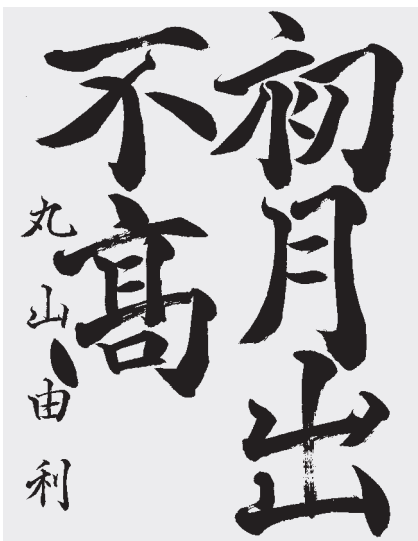 初月出
不髙
丸山由利